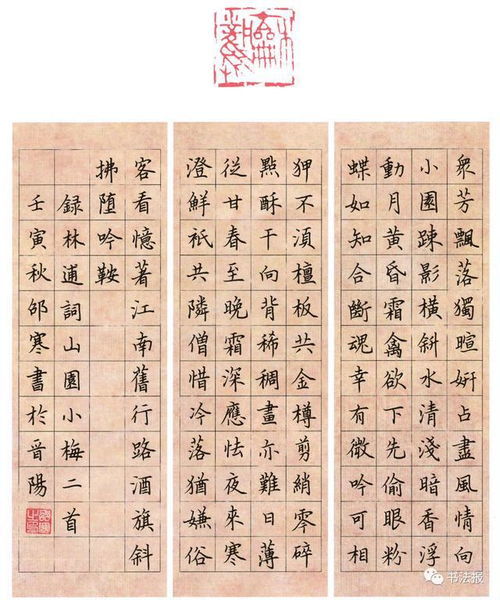 衆芳飄落獨暄妍占盡風情向
小園踈影橫斜水清淺暗香浮
動月黃昏霜禽欲下先偷眼粉
蝶如知合斷魂幸有微吟可相
狎不湏檀板共金樽剪綃零碎
點酥干向背稀稠畫亦難日薄
從甘春至晚霜深應怯夜來寒
澄鮮祇共隣僧惜冷落猶嫌俗
客看憶著江南舊行路酒旗斜
拂墮吟鞍
録林逋詞山園小梅二首
壬寅秋邵寒書於晉陽
书法报